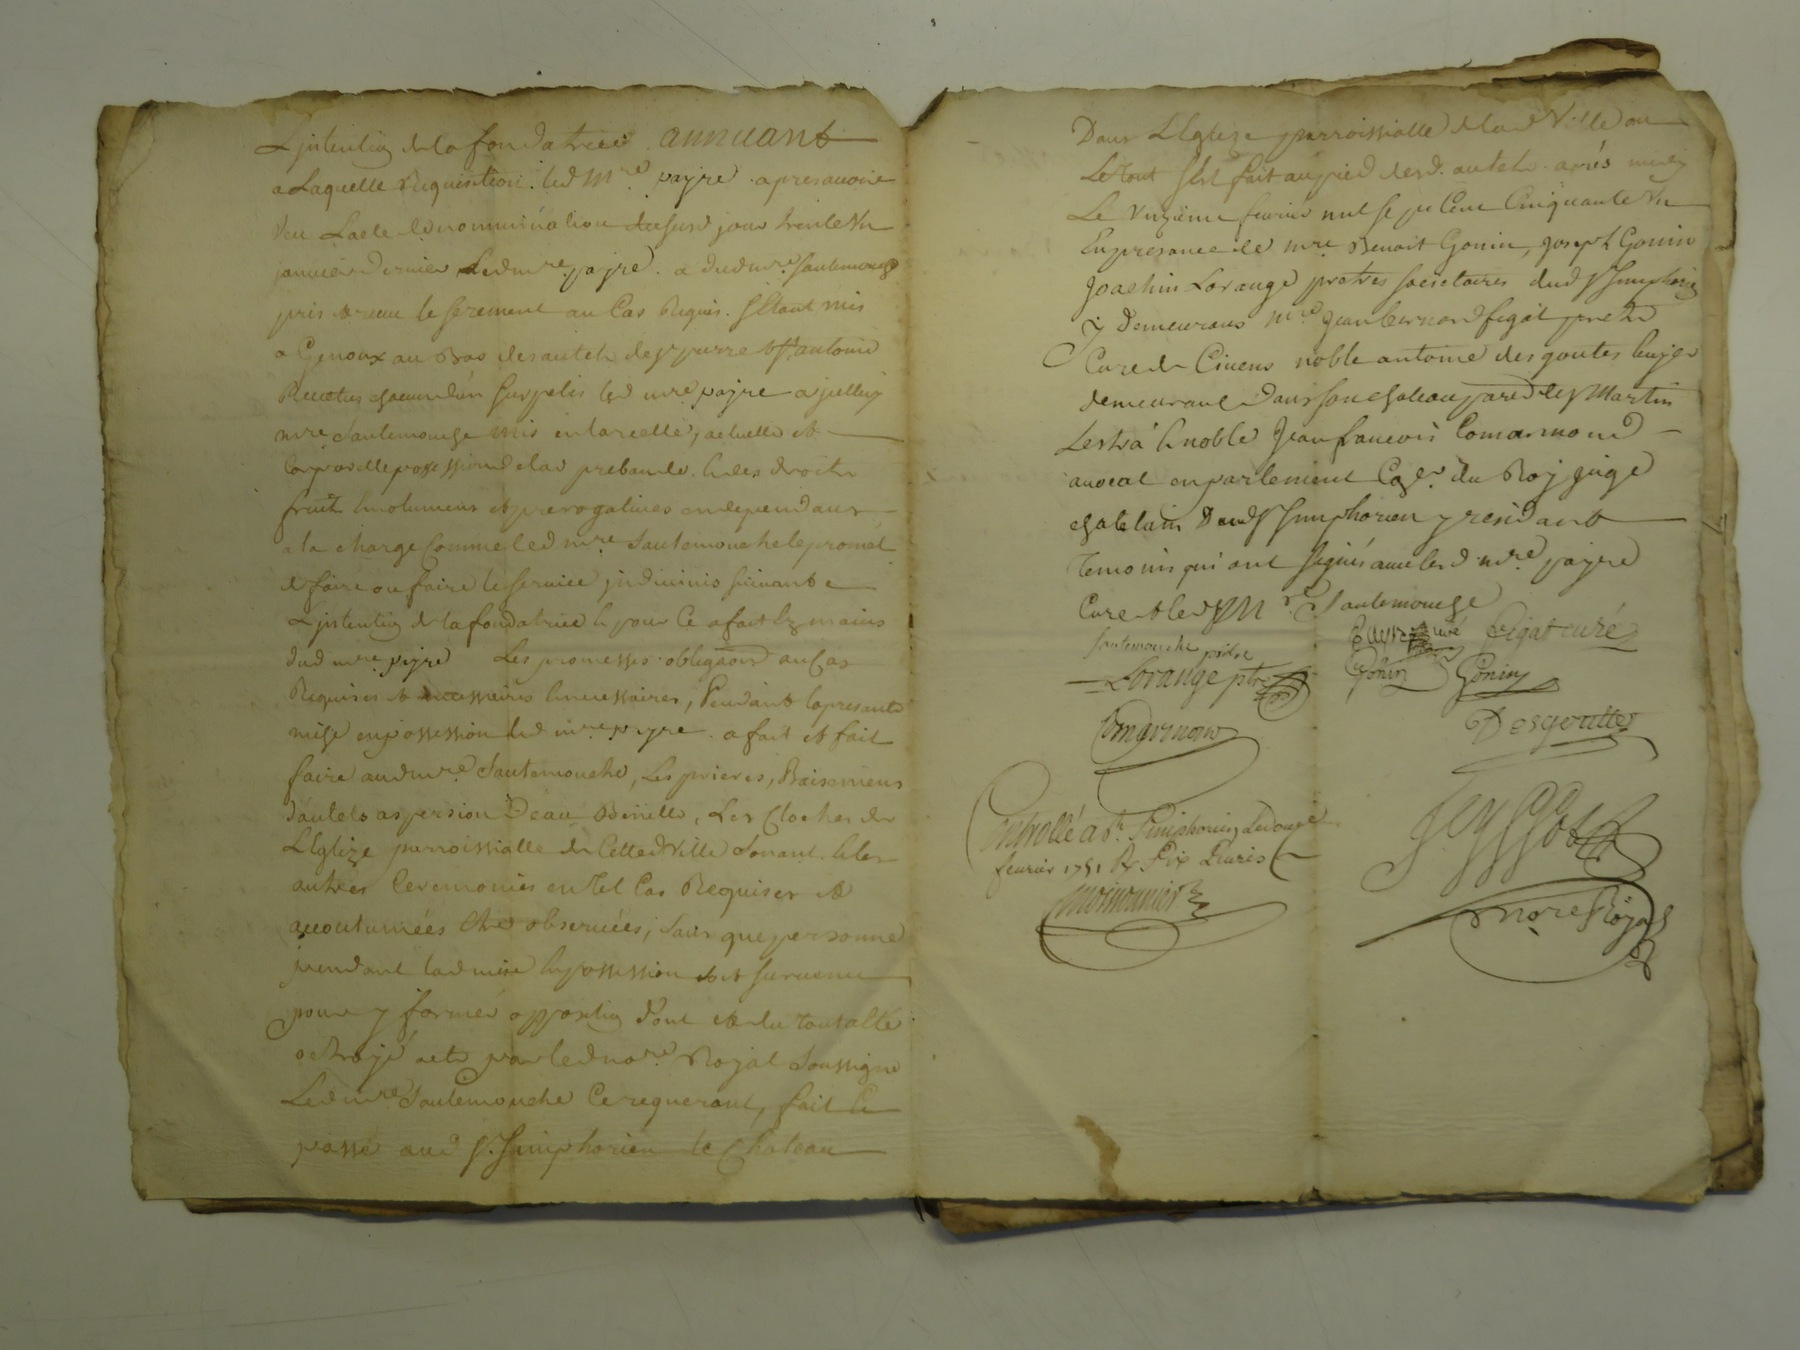 L'jntention de la fondatrice. annuant
a Laquelle Requisition. led Mre. payre. apres avoir
veu Lacte de nommination dususd jour trente Un
janvier dernier Ledmre. payre. a dudmre. Sautemouche
pris & receu le serement au Cas Requis. S'Etant mis
a Genoux au Bas des autels de St pierre & St antoine
Revetus chacun d'un Surpelis led mre payre a jcelluy
mre Sautemouche mis en la réelle, actuelle et
Corporelle possession de lad prebande. & des droits
fruits Emolumens et prerogatives en dependans
a la charge Comme led mre Sautemouche le promet
de faire ou faire le service jndivinis suivant
L'jntention de la fondatrice & pour Ce a fait Ez mains
dud mre payre Les promesses obligaons au Cas
Requises & necessaires, Pendant la presante
mise en possession led mre payre. a fait et fait
faire audmre. Sautemouche, Les prieres, Baisemens
d'autels aspersion D'eau Benitte, Les Cloches de
L'Eglize parroissialle de Cette d Ville Sonant. & les
autres Ceremonies en Tel Cas Requises et
accoutumées Etre observées, sans que personne
pendant lad mise en possession soit survenue
pour y former opposition dont et du tout a Eté
octroyé acte par led nore. Royal Soussigné
Ledmre Sautemouche Ce requerant, fait &
passé aud St. Simphorien le Chateau
Dans L'Eglize parroissialle de lad Ville ou
Le tout s'est fait au pied desd. autels. aprés midy
Le Unzieme fevrier mil sept Cens Cinquante Un
En presance de mre Benoit Gonin, Joseph Gonin
Joachin Lorange prestres societaires dud St Simphorien
y demeurans mre. Jean bernard figat pretre
Curé de Civens noble antoine des goutes
demeurant dans son chateau parr de St Martin
Lestrá & noble Jean francois Comarmond
avocat en parlement Coer. du Roy juge
chatelain Dud St Simphorien y residant
Temoins qui ont signés avec led. mre. payre
Curé & led Mre Sautemouche
Sautemouche prêtre
Payre curé Figat curé
Lorange ptre
Gonin Gonin
Comarmond
Desgouttes
Controllé a St. Simphorien Le douze
fevrier 1751 R. Six Livres
nore Royal